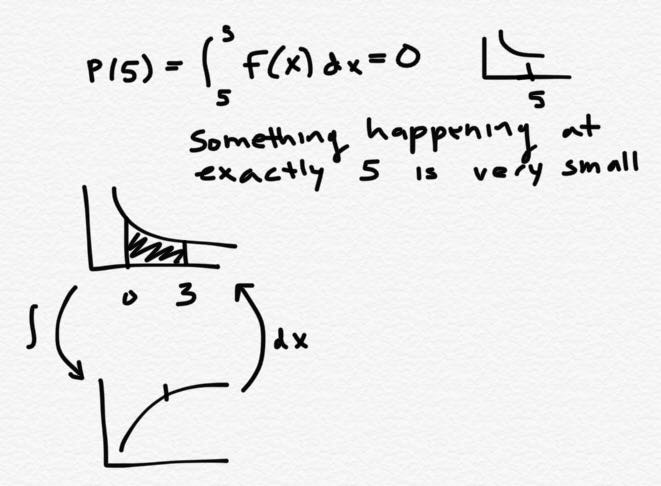 P(5) = ∫₅⁵ f(x) dx = 0
5
Something happening at
exactly 5 is very small
0 3
∫
dx